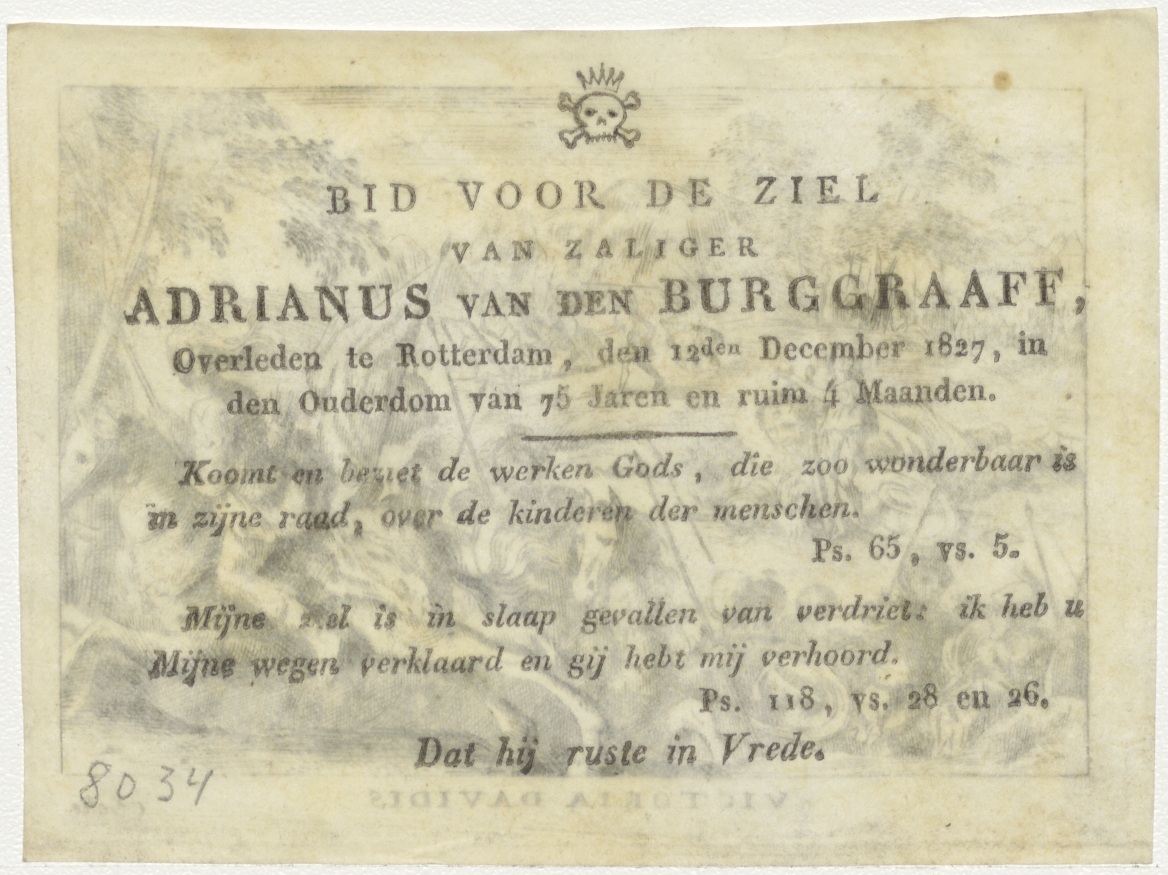 BID VOOR DE ZIEL
VAN ZALIGER
ADRIANUS VAN DEN BURGGRAAFF,
Overleden te Rotterdam, den 12den December 1827, in
den Ouderdom van 75 Jaren en ruim 4 Maanden.
Koomt en beziet de werken Gods, die zoo wonderbaar is
in zijne raad, over de kinderen der menschen.
Ps. 65, vs. 5.
Mijne ziel is in slaap gevallen van verdriet: ik heb u
Mijne wegen verklaard en gij hebt mij verhoord.
Ps. 118, vs. 28 en 26.
Dat hij ruste in Vrede.
8034
VICTORIA DAVIDIS